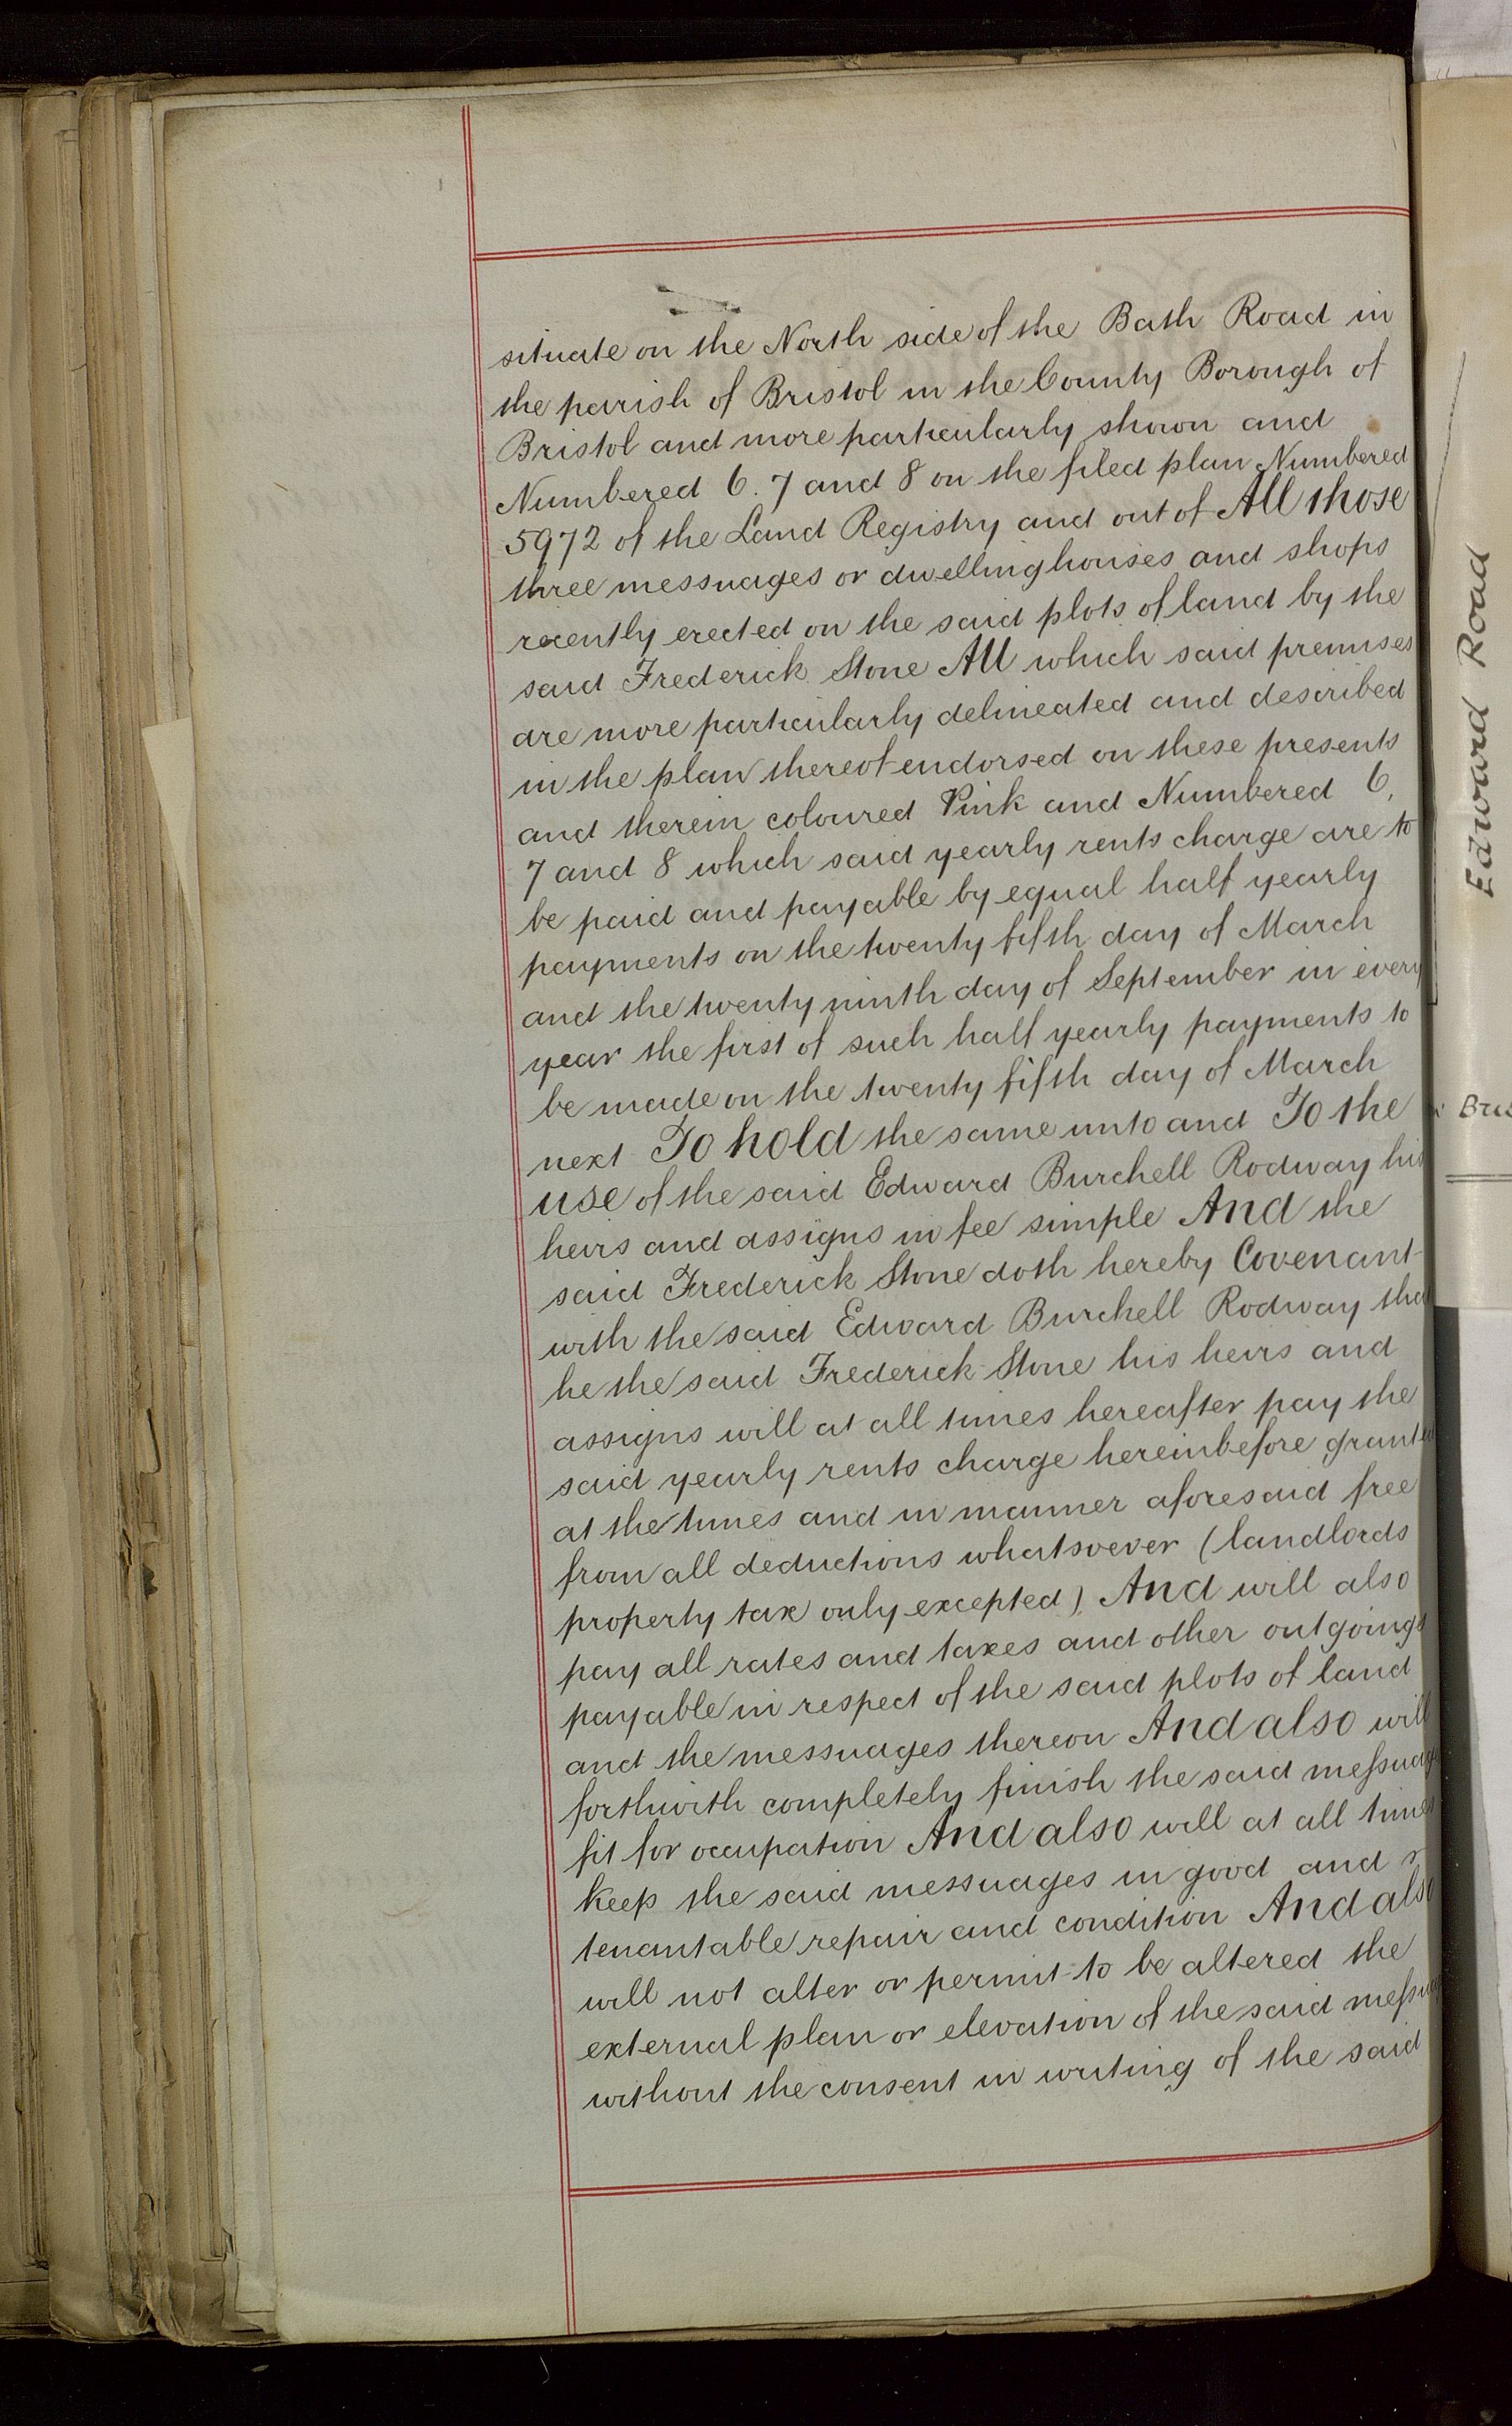 situate on the North side of the Bath Road in
the parish of Bristol in the County Borough of
Bristol and more particularly shown and
Numbered 6. 7 and 8 on the filed plan Numbered
5972 of the Land Registry and out of All those
three messuages or dwellinghouses and shops
recently erected on the said plots of land by the
said Frederick Stone All which said premises
are more particularly delineated and described
in the plan thereof endorsed on these presents
and therein coloured Pink and Numbered 6,
7 and 8 which said yearly rents charge are to
be paid and payable by equal half yearly
payments on the twenty fifth day of March
and the twenty ninth day of September in every
year the first of such half yearly payments to
be made on the twenty fifth day of March
next To hold the same unto and To the
use of the said Edward Burchell Rodway his
heirs and assigns in fee simple And the
said Frederick Stone doth hereby Covenant
with the said Edward Burchell Rodway that
he the said Frederick Stone his heirs and
assigns will at all times hereafter pay the
said yearly rents charge hereinbefore granted
at the times and in manner aforesaid free
from all deductions whatsoever (landlords
property tax only excepted) And will also
pay all rates and taxes and other outgoings
payable in respect of the said plots of land
and the messuages thereon And also will
forthwith completely finish the said messuages
fit for occupation And also will at all times
keep the said messuages in good and
tenantable repair and condition And also
will not alter or permit to be altered the
external plan or elevation of the said messuages
without the consent in writing of the said
Edward Road